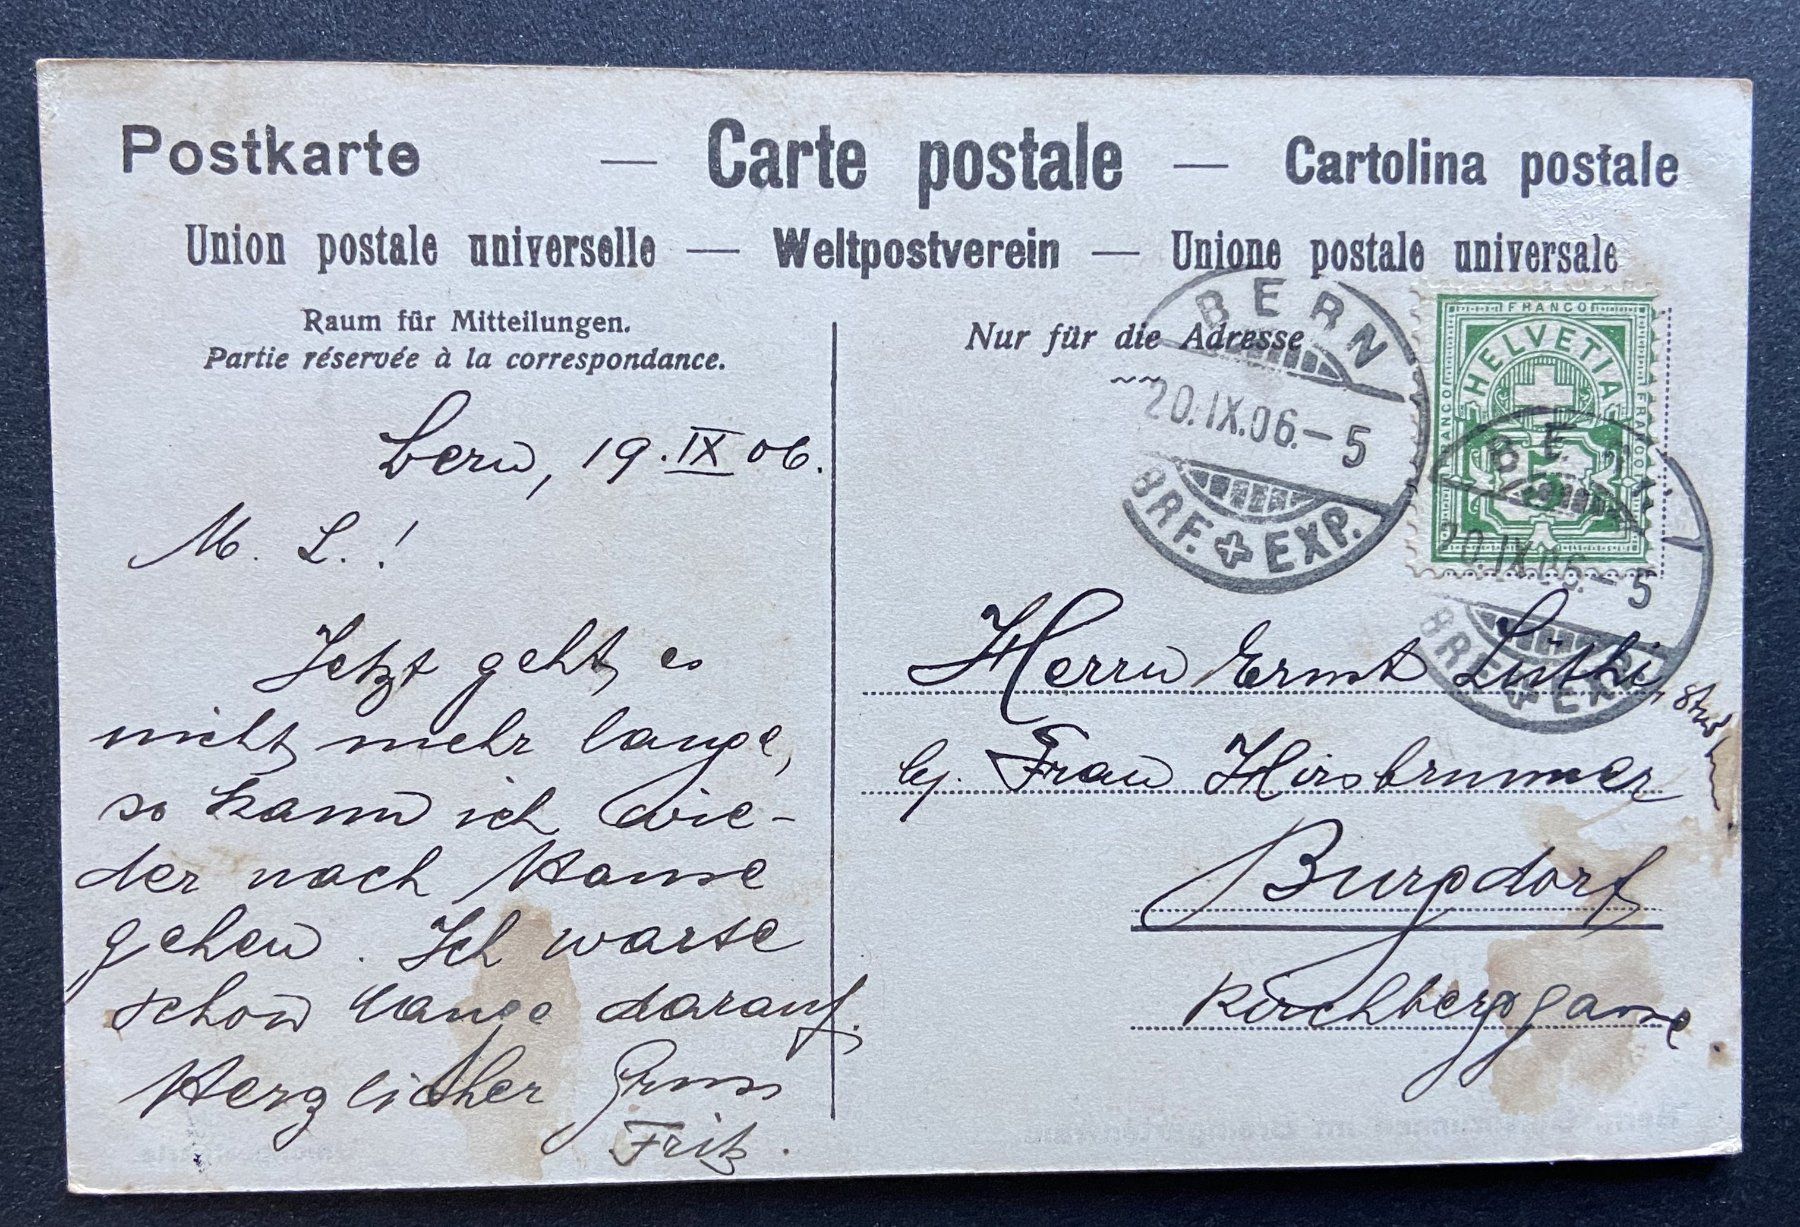 Postkarte — Carte postale — Cartolina postale
Union postale universelle — Weltpostverein — Unione postale universale
Raum für Mitteilungen.
Partie réservée à la correspondance.
Nur für die Adresse
Bern, 19. IX 06.
M. L.!
Jetzt geht es
nicht mehr lange,
so kann ich wie-
der nach Hause
gehen. Ich warte
schon lange darauf.
Herzlicher Gruss
Fritz.
BERN
20.IX.06.–5
BRF. EXP.
FRANCO
HELVETIA
FRANCO
FRANCO
5
BE
20.IX.06.–5
BRF. EXP.
Herrn Ernst Lüthi, stud
bj. Frau Hirsbrunner
Burgdorf
Kirchberggasse